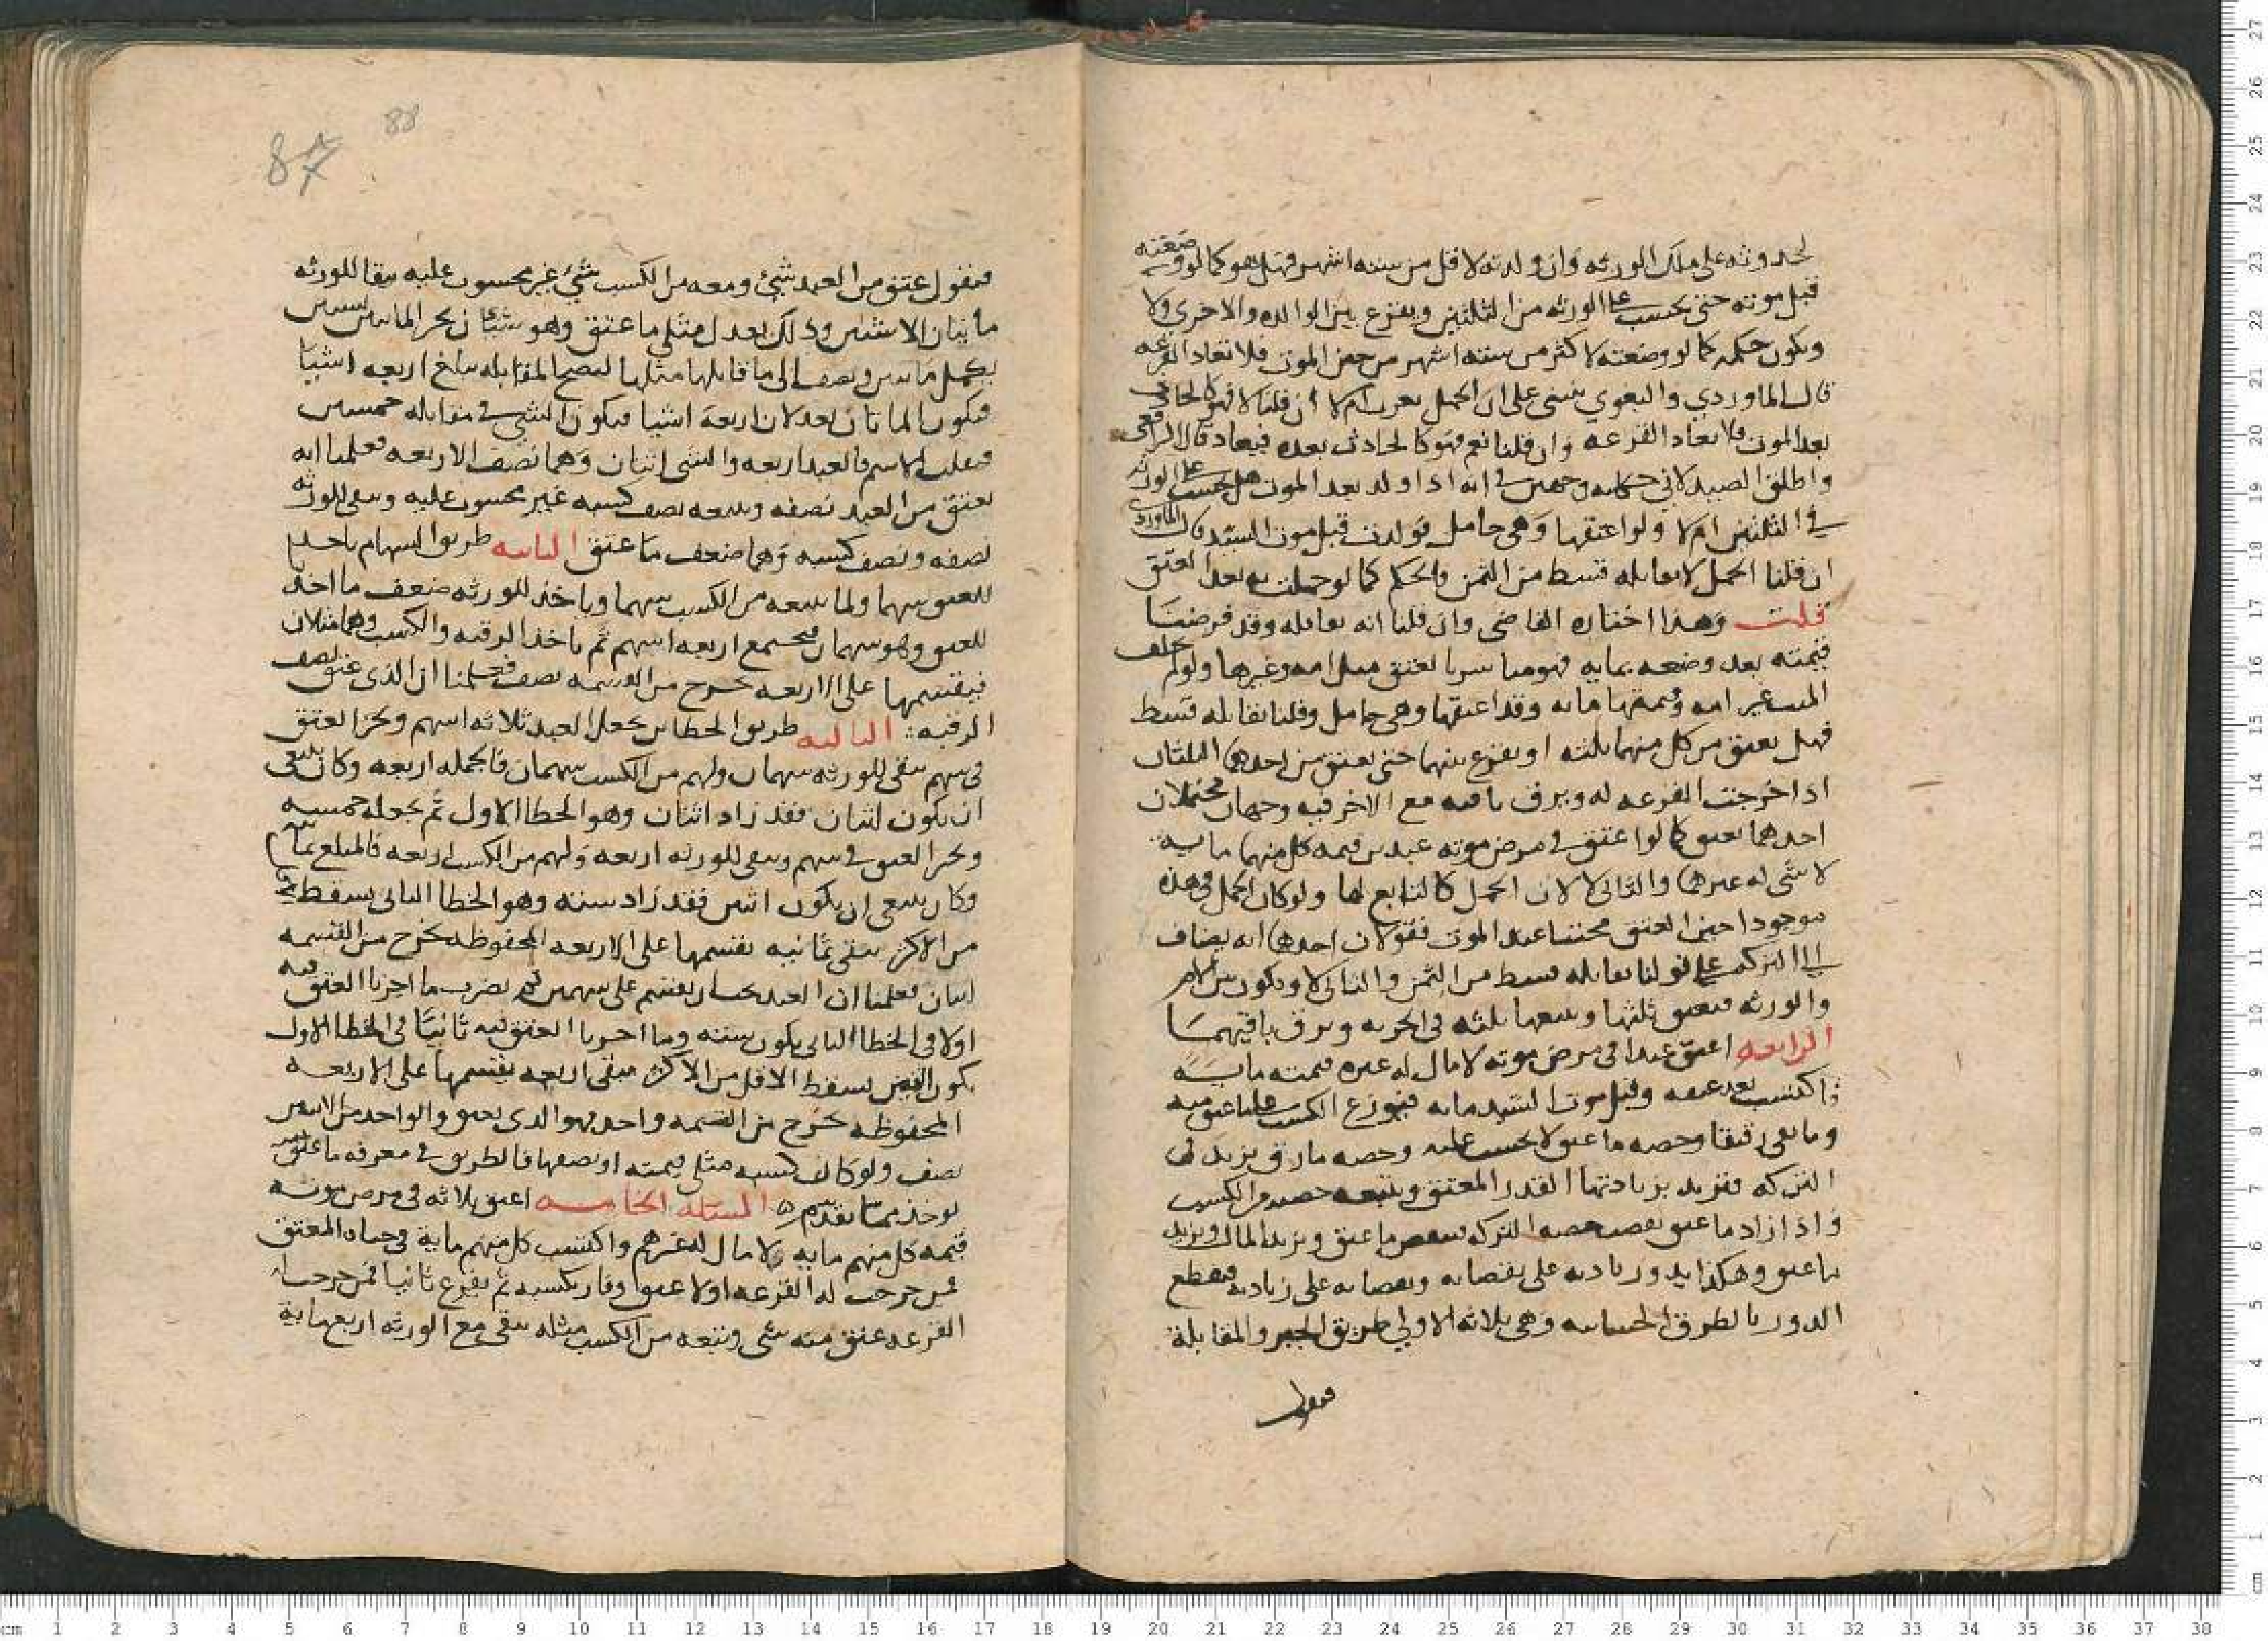 لحدوثه على ملك الورثه وان ولدته لاقل من سته اشهر فهل هو كما لو وضعته
قبل موته حتى يحسب على الورثه من الثلثين ويقرع بين الوالده والاخرى ولا
ويكون حكمه كما لو وضعته لاكثر من سته اشهر من حين الموت فلا تعاد القرعه
قال الماوردي والبغوي ينبني على ان الحمل يعرف ام لا ان قلنا لا فهو كالحادث
بعد الموت فلا تعاد القرعه وان قلنا نعم فهو كالحادث بعده فيعاد قال الرافعي
واطلق الصيدلاني حكايه وجهين في انه اذا ولد بعد الموت هل يحسب على الورثه
في الثلثين ام لا ولو اعتقها وهي حامل فولدت قبل موت السيد قال الماوردي
ان قلنا الحمل لا يقابله قسط من الثمن والحكم كما لو حملت به بعد العتق
قلت وهذا اختاره القاضى وان قلنا انه يقابله وقد فرضنا
قيمته بعد وضعه بمايه فهو مما سرنا لعتق مثل امه وغيرها ولو لم يخلف
الميت غير امه وقيمتها مايه وقد اعتقها وهي حامل وقلنا يقابله قسط
فهل يعتق من كل منهما ثلثه او يقرع بينهما حتى يعتق من احدهما الثلثان
اذا خرجت القرعه له ويرق باقيه مع الاخر فيه وجهان محتملان
احدهما نعم كما لو اعتق في مرض موته عبدين قيمه كل منهما مايه
لا شى له غيرهما والثاني لا لان الحمل كالتابع لها ولو كان الحمل في هذه
موجودا حين العتق مجتنا عند الموت فقولان احدهما انه يضاف
الى التركه على قولنا يقابله قسط من الثمن والثاني لا ويكون بين الام
والورثه فيعتق ثلثها ويتبعها ثلثه في الحريه ويرق باقيهما
الرابعه اعتق عبدا في مرض موته لا مال له غيره قيمته مايه
فاكتسب بعد عتقه وقبل موت السيد مايه فيوزع الكسب على ما عتق منه
وما بقى رقيقا وحصه ما عتق لا يحسب عليه وحصه ما رق يزيد في
التركه فتزيد بزيادتها القدر المعتق ويتبعه حصته من الكسب
فاذا زاد ما عتق نقصت حصه التركه فينقص ما عتق ويزيد المال ويزيد
ما عتق وهكذا يدور زيادته على نقصانه ونقصانه على زيادته فيقطع
الدور بالطرق الحسابيه وهي ثلاثه الاولى طريق الجبر والمقابلة
فيقول
87 88
فنقول عتق من العبد شيئ ومعه من الكسب شيئ غير محسوب عليه يبقا للورثه
مايتان الا شيئين وذلك يعدل مثلى ما عتق وهو شيئان نجبر المايتين بشيئين
بكمل مايتين ونضيف الى ما قابلها مثلها لتصح المقابله يبلغ اربعه اشيا
فيكون المايتان تعدلان اربعة اشيا فيكون الشي في مقابله خمسين
فيقلب الاسم فالعبد اربعه والشى اثنان وهما نصف الاربعه فعلمنا انه
يعتق من العبد نصفه ويتبعه نصف كسبه غير محسوب عليه ويبقى للورثه
نصفه ونصف كسبه وهما ضعف ما عتق الثانيه طريق السهام ياخذ
للعتق سهما ولما يتبعه من الكسب سهما وياخذ للورثه ضعف ما اخذ
للعتق وهو سهمان فيجتمع اربعه اسهم ثم ياخذ الرقبه والكسب وهما مثلان
فيقسمها على الاربعه يخرج من القسمه نصف فعلمنا ان الذى عتق نصف
الرقبه الثالثه طريق الخطاين يجعل العبد ثلاثه اسهم ويجز العتق
في سهم يبقى للورثه سهمان ولهم من الكسب سهمان فالجمله اربعه وكان ينبغي
ان يكون اثنان فقد زاد اثنان وهو الخطا الاول ثم يجعله خمسه
ويجز العتق في سهم ويبقى للورثه اربعه ولهم من الكسب اربعه فالمبلغ ثمانيه
وكان ينبغي ان يكون اثنين فقد زاد سته وهو الخطا الثاني يسقط
من الاكثر يبقى ثمانيه نقسمها على الاربعه المحفوظه يخرج من القسمه
اثنان فعلمنا ان العبد يقسم على سهمين ثم نضرب ما اجزنا العتق فيه
اولا في الخطا الثاني يكون سته وما اجزنا العتق فيه ثانيا في الخطا الاول
يكون اثنين يسقط الاقل من الاكثر يبقى اربعه يقسمها على الاربعه
المحفوظه يخرج من القسمه واحد فهو الذى يعتق والواحد من الاثنين
نصف ولو كان كسبه مثلى قيمته او نصفها فالطريق في معرفه ما عتق
يوخذ مما تقدم المسئله الخامسه اعتق ثلاثه في مرض موته
قيمه كل منهم مايه ولا مال له غيرهم واكتسب كل منهم مايه في حياه المعتق
فمن خرجت له القرعه اولا عتق وفاز بكسبه ثم يقرع ثانيا فمن خرجت له
القرعه عتق منه شى وتبعه من الكسب مثله يبقى مع الورثه اربعمايه